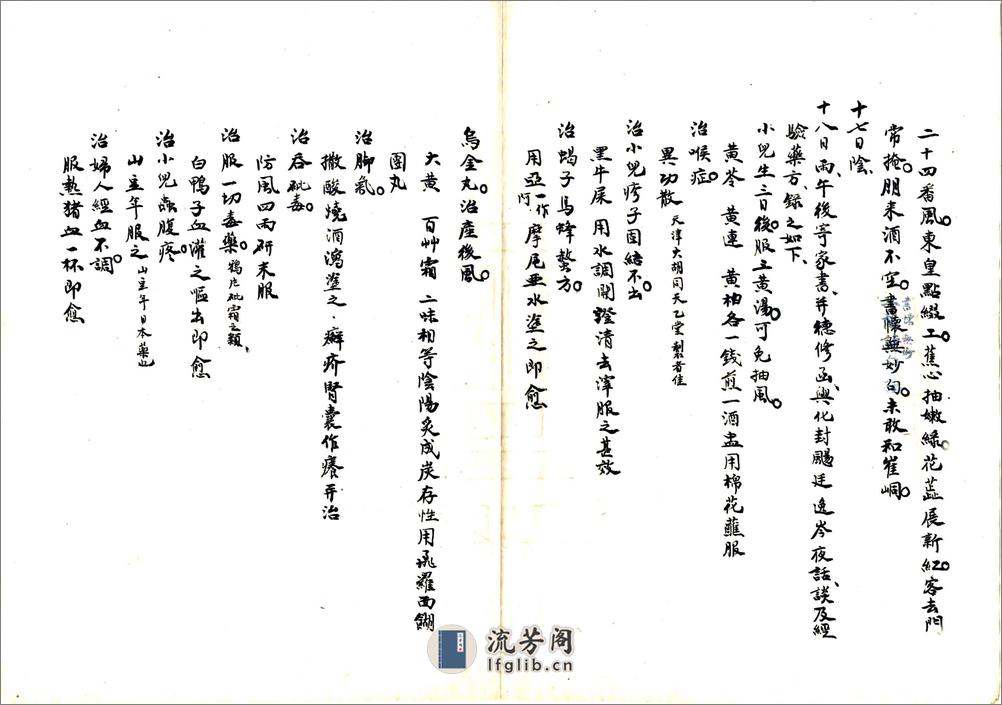 二十四番風東皇點綴工蕉心抽嫩綠花蕋展新紅客去門
常掩朋來酒不空書懷無妙句未敢和崔峒
十七日陰
十八日雨午後寄家書并德修函與化封颺廷逸岑夜話談及經
驗藥方錄之如下
小兒生三日後服三黃湯可免抽風
黃芩 黃連 黃柏各一錢煎一酒盅用棉花蘸服
治喉症
異功散 天津大胡同天乙堂製者佳
治小兒疹子固結不出
黑牛屎 用水調開澄清去滓服之甚效
治蝎子馬蜂螫方
用亞一作阿摩尼亜水塗之即愈
烏金丸治產後風
大黃 百艸霜 二味相等陰陽炙成炭存性用飛羅面餬
團丸
治脚氣
撒酸燒酒瀉塗之癬疥腎囊作癢并治
治吞砒毒
防風四兩研末服
治服一切毒藥 鴉片砒霜之類
白鴨子血灌之嘔出即愈
治小兒蟲腹疼
山主年服之 山主年日本藥也
治婦人經血不調
服熱猪血一杯即愈
流芳阁
lfglib.cn